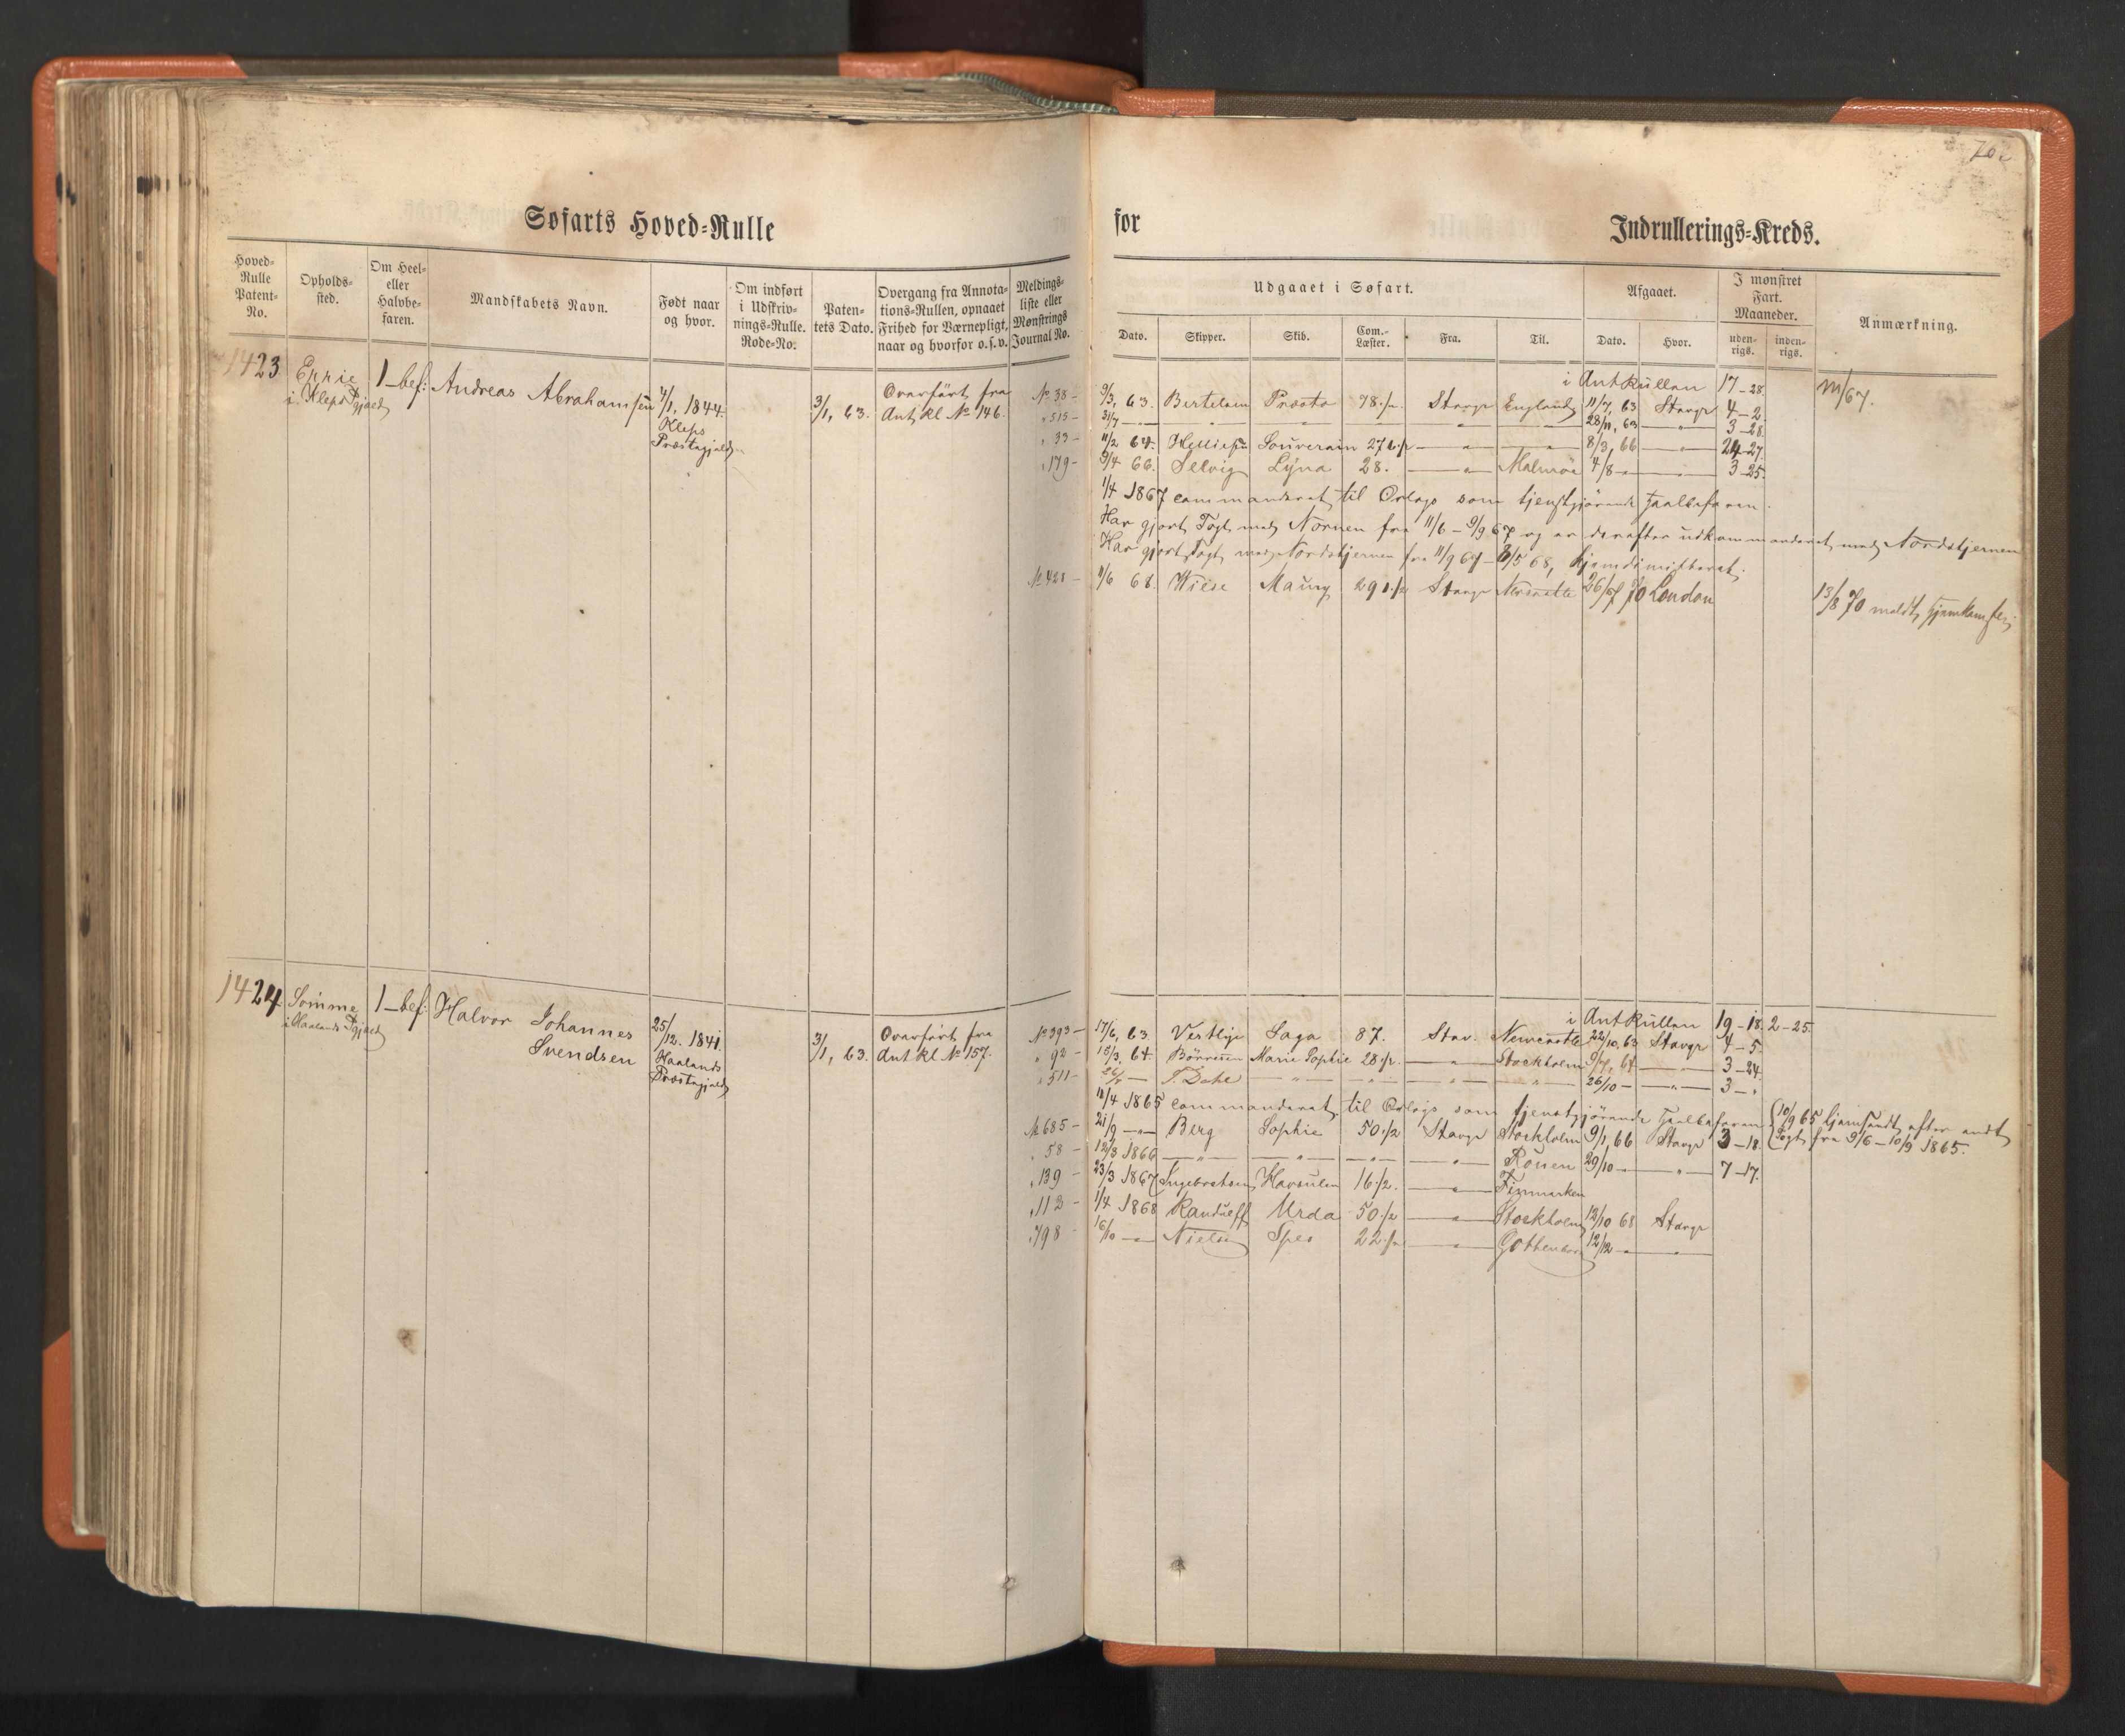 Søfarts Hoved-Rulle
for
Indrullerings-Kreds.
Hoved-Rulle Patent-No.
Opholds-sted.
Om Heel- eller Halvbe-faren.
Mandskabets Navn.
Født naar og hvor.
Om indført i Udskriv-nings-Rulle. Rode-No.
Paten-tets Dato.
Overgang fra Annota-tions-Rullen, opnaaet Frihed for Værnepligt, naar og hvorfor o.s.v.
Meldings-liste eller Mønstrings Journal No.
Udgaaet i Søfart.
Afgaaet.
I mønstret Fart. Maaneder.
Anmærkning.
Dato. Skipper. Skib. Com.-Læster. Fra. Til. Dato. Hvor. uden-rigs. inden-rigs.
1423 1_bef: Andreas Abrahamsen 4/1, 1844 3/1, 63. Overført fra
i Kleps Pgjæld Kleps Ant kl. No 146.
Præstegjæld
i Ant Rullen 17-28 m/67.
No 38 - 9/3, 63. Bertelsen Præsto 78./2. Stavgr England 11/7, 63 Stavgr 4-2.
" 515 - 31/7 — " — 28/11, 63 — " — 3-28.
" 33 - 11/2 64. Souverain — " — 8/3, 66 — " — 24-27.
" 179 - 9/4 66. Selvig Lyna 28. — " — Malmöe 4/8 — " — 3-25.
1/4 1867 commanderet til Orlogs som tjenstgjørende Heelbefaren.
Har gjort Togt med Nornen fra 11/6 - 9/9 67 og er derefter udkommanderet med Nordstjernen
Har gjort Togt med Nordstjernen fra 11/9 67 - 8/5 68, hjemdimitteret.
No 421 - 11/6 68. Wiese Maury 291./2 Stavgr Newcastle 26/7 70 London
13/8 70 meldt Hjemkomsten.
1424 Sømme 1_bef: Halvor Johannes 25/12. 1841. 3/1, 63. Overført fra
i Haalands Pgjæld Svendsen Haalands Ant kl. No 157.
Præstegjæld
i Ant Rullen 19-18. 2-25.
No 393 - 17/6, 63. Saga 87. Stav. Newcastle 22/10, 63 Stavgr 4-5.
" 92 - 15/3, 64. Børresen Marie Sophie 28./2. — " — Stockholm 9/7, 64 — " — 3-24.
" 511 - 26/7 — — " — 26/10 — " — 3-".
11/4 1865 commanderet til Orlogs som tjenstgjørende Heelbefaren
{10/9 65 hjemsendt efter endt
Togt fra 9/6 - 10/9 1865.
No 685 - 21/9 — " — Berg Sophie 50./2 Stavgr Stockholm 9/1, 66 Stavgr 3-18.
" 58 - 12/3 1866 — " — Rouen 29/10 — " — 7-17.
" 139 - 23/3 1867 Ingebretsen Havsulen 16./2. — " — Finmarken
" 112 - 1/4 1868 Randulff Urda 50./2 — " — Stockholm 12/10 68 Stavgr
" 798 - 16/10 — " — Nielsen Spes 22./2 — " — Gothenborg 12/12 — " —